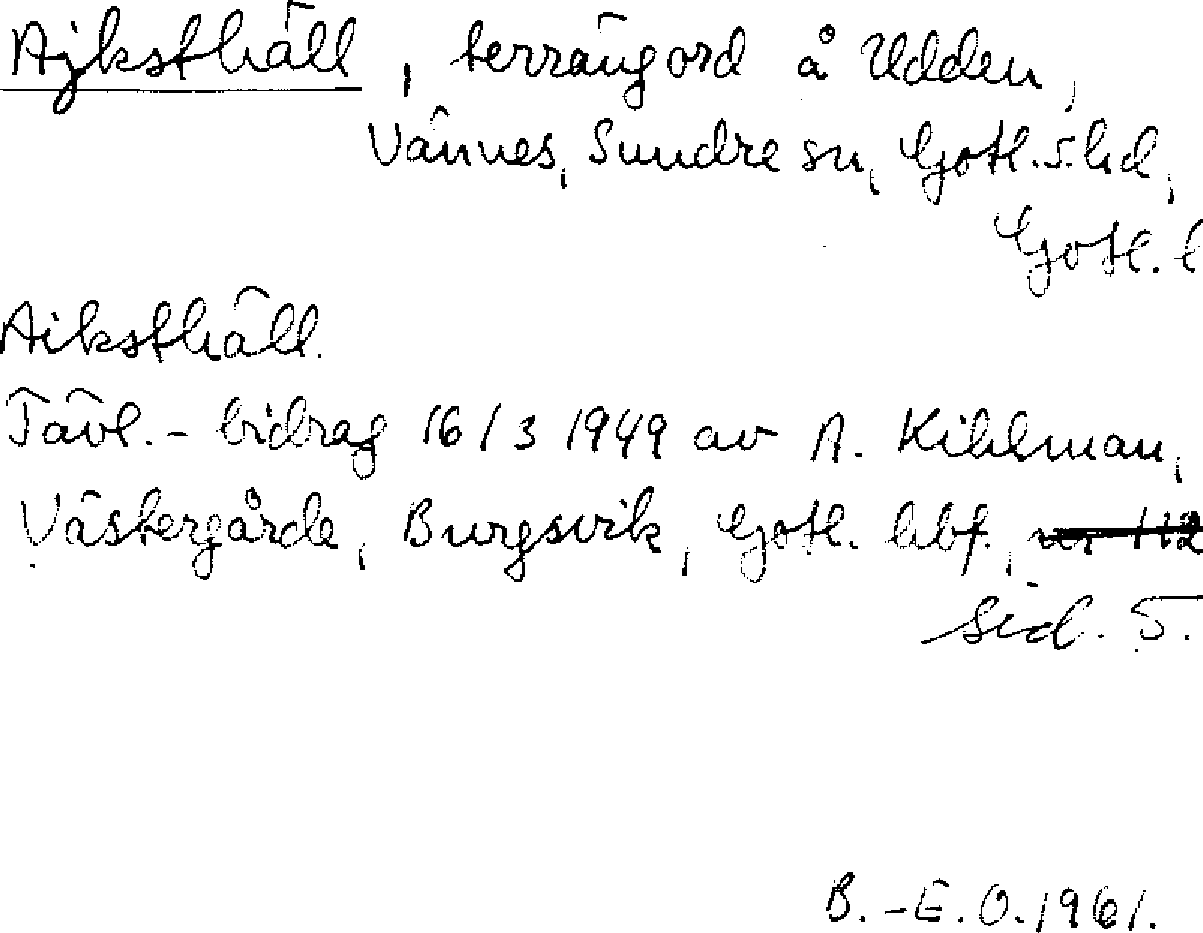 Ajksthäll, terrängord å Udden,
Vännes, Sundre sn, Gotl. s. hd,
Gotl. l
Aiksthäll.
Tävl.- bidrag 16/3 1949 av A. Kihlman,
Västergårde, Burgsvik, Gotl. hbf., nr 112
Sid. 5.
B.-E.O. 1961.